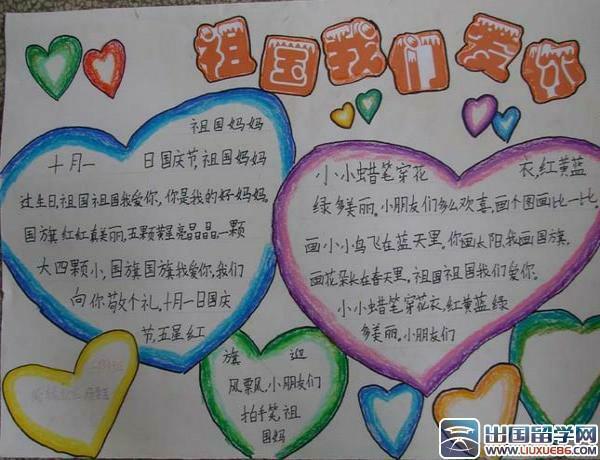 祖国我们爱你
祖国妈妈
十月一 日国庆节,祖国妈妈
过生日,祖国祖国我爱你,你是我的好妈妈,
国旗红红真美丽,五颗黄星亮晶晶,一颗
大四颗小,国旗国旗我爱你,我们
向你敬个礼,十月一日国庆
节,五星红
小小蜡笔穿花 衣,红黄蓝
绿多美丽。小朋友们多么欢喜,画个图画比一比,
画小小鸟飞在蓝天里。你画太阳,我画国旗,
画花朵长在春天里,祖国祖国我们爱你。
小小蜡笔穿花衣,红黄蓝绿
多美丽。小朋友们
旗 迎
风飘,小朋友们
拍手笑,祖
国妈
出国留学网
WWW.LIUXUE86.COM